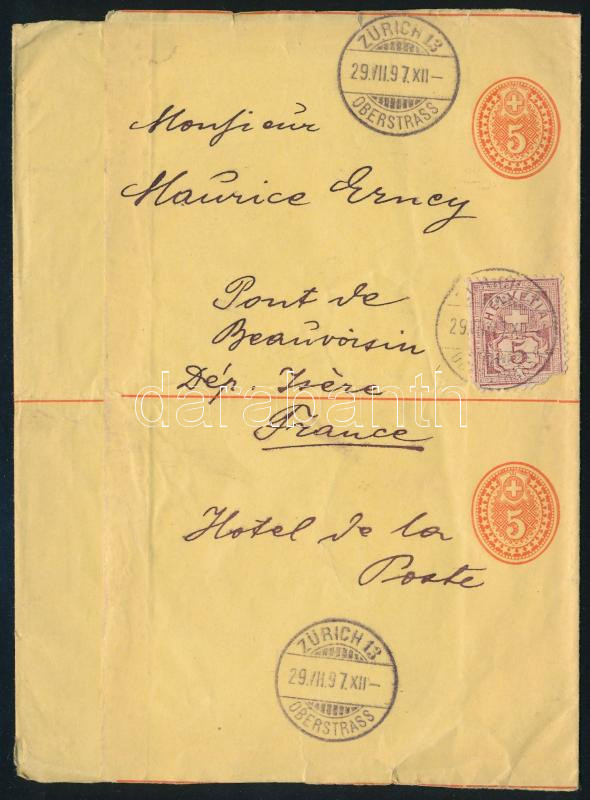 ZÜRICH 13
29.VII.97.XII–
OBERSTRASS
5
Monsieur
Maurice Erney
HELVETIA
5
Pont de
Beauvoisin
Dép. Isère
darabanth
France
5
Hotel de la
Poste
ZÜRICH 13
29.VII.97.XII–
OBERSTRASS